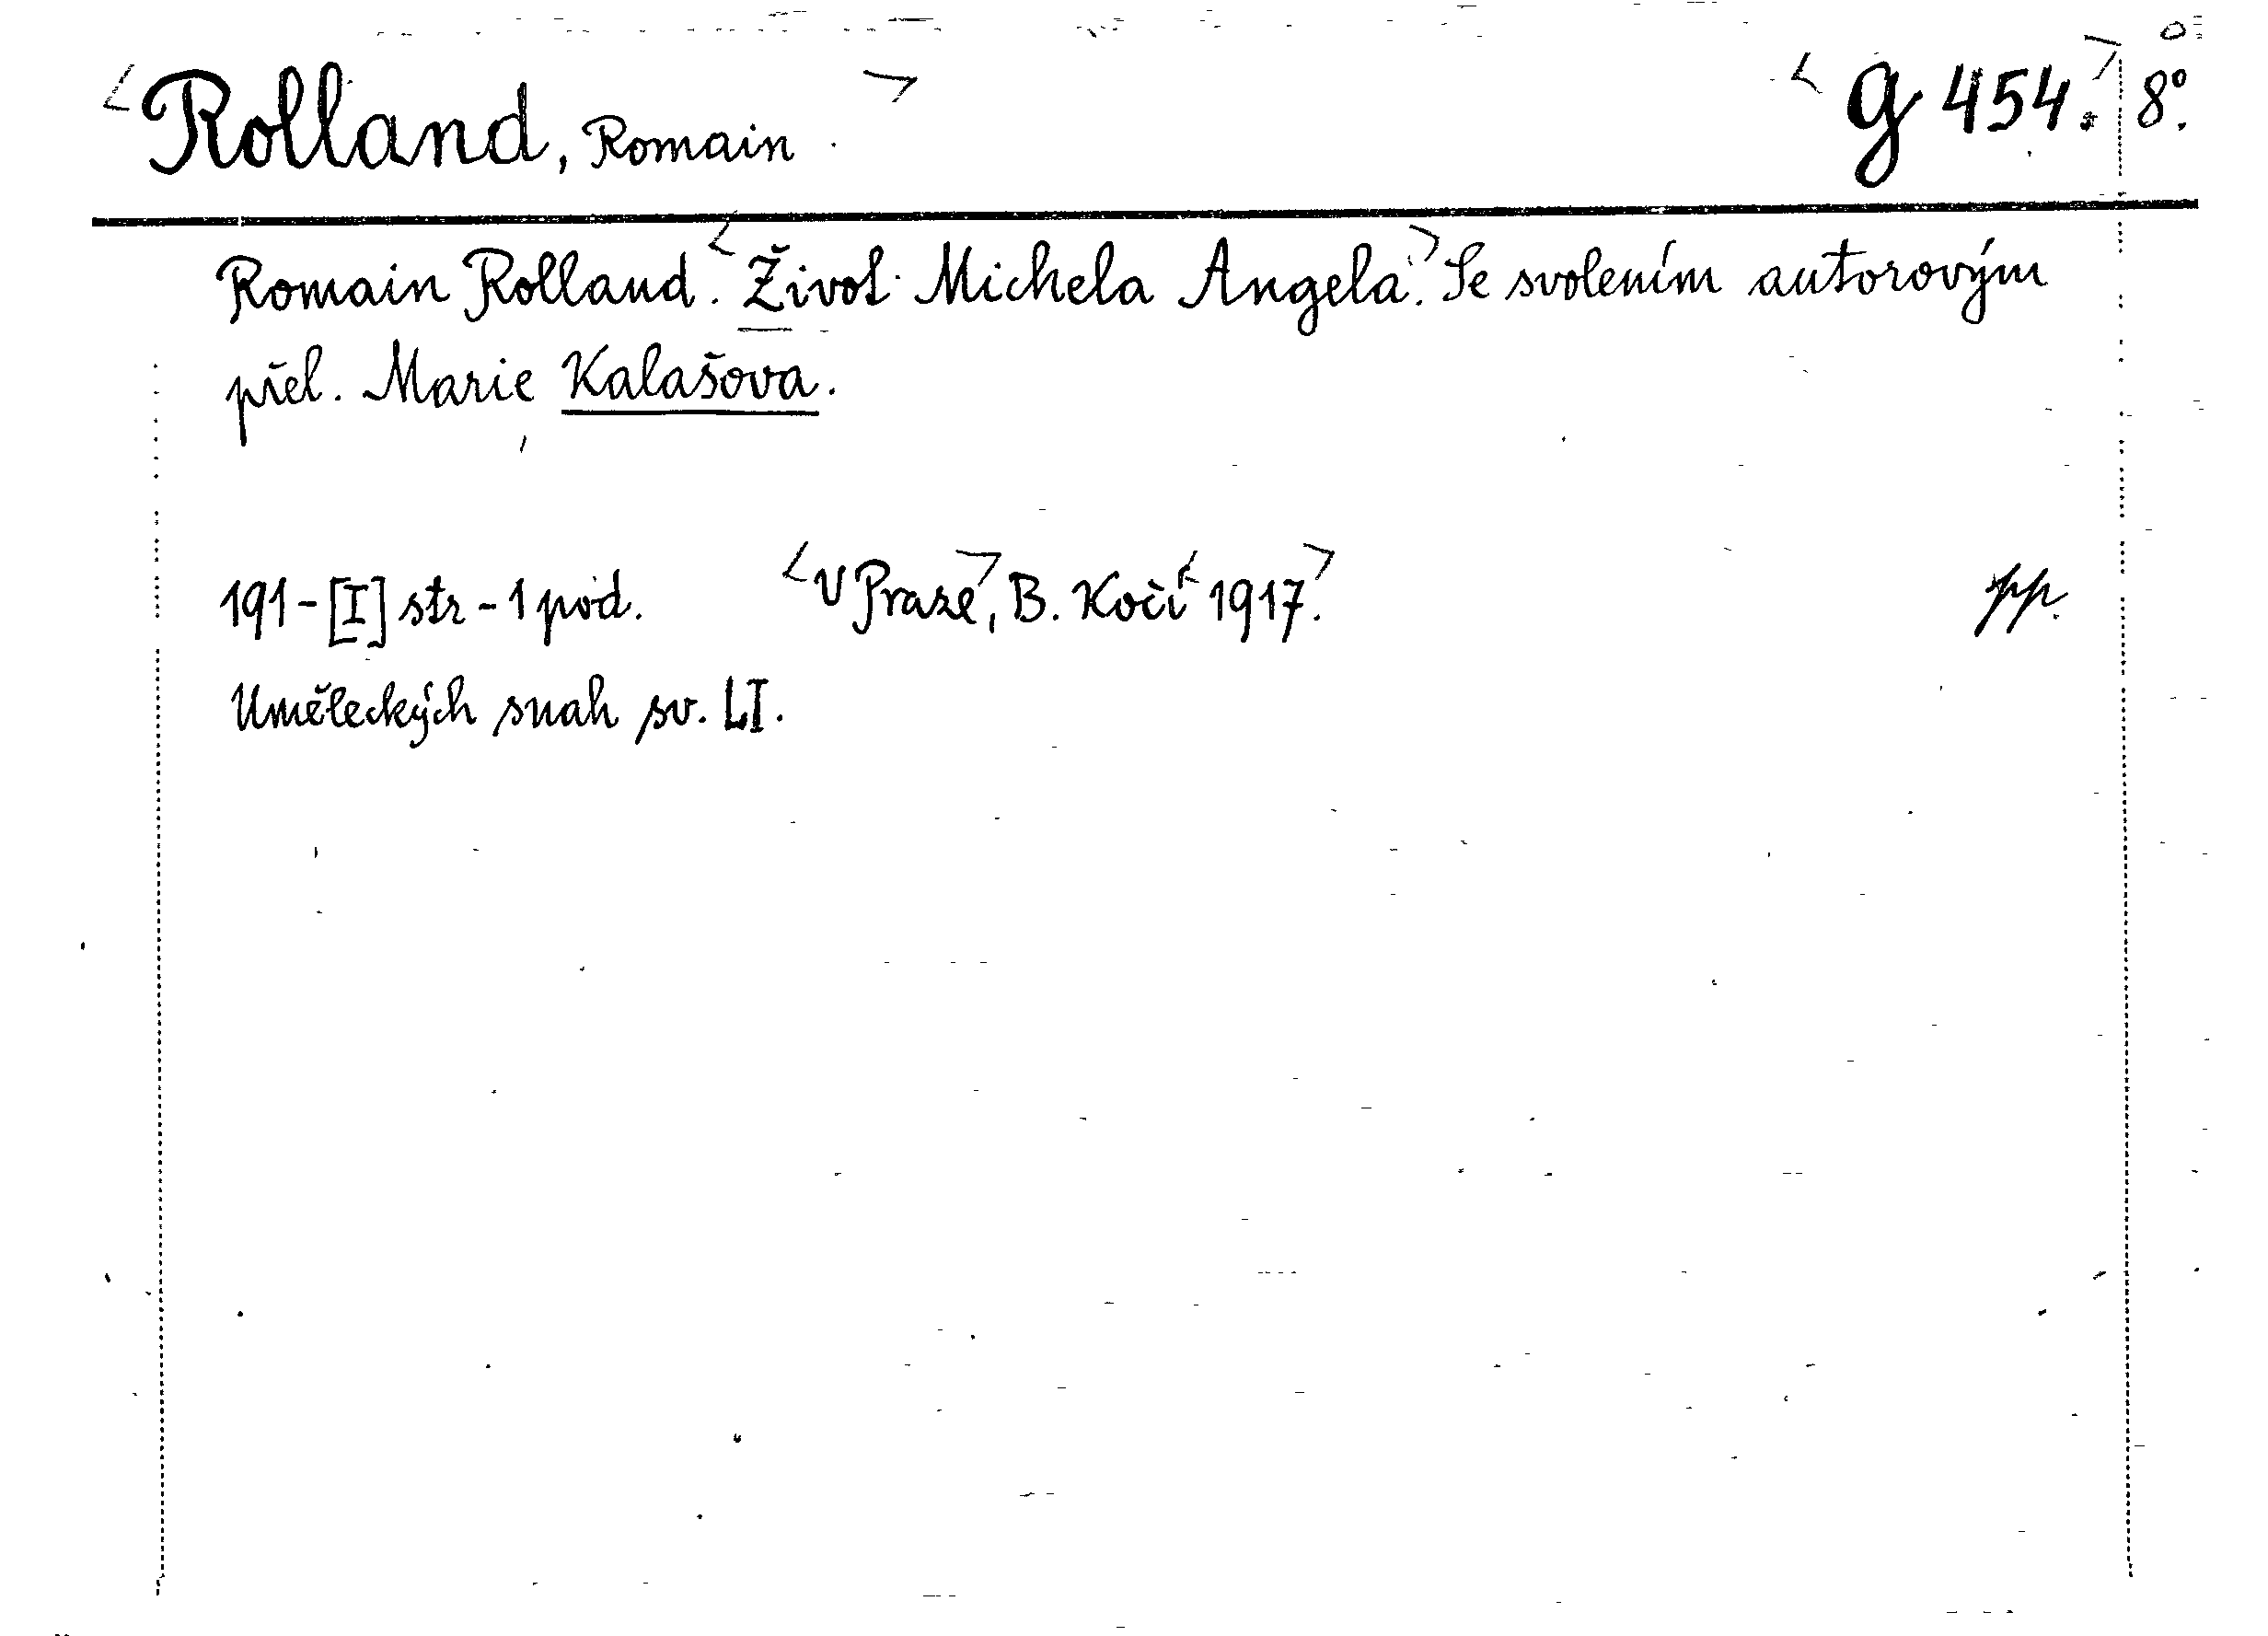 <Rolland, Romain> <g 454.> 8°.
Romain Rolland. <Život Michela Angela.> Se svolením autorovým
přel. Marie Kalašova.
191-[I] str - 1 pod. <V Praze>, B. Kočí <1917.> pp.
Uměleckých snah sv. LI.